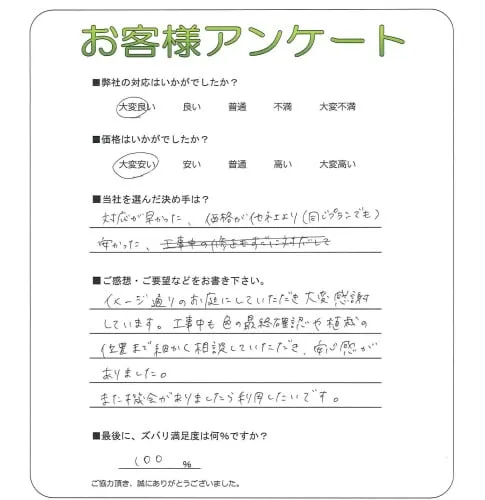 お客様アンケート
■弊社の対応はいかがでしたか?
大変良い 良い 普通 不満 大変不満
■価格はいかがでしたか?
大変安い 安い 普通 高い 大変高い
■当社を選んだ決め手は?
対応が早かった、価格が他社より(同じプランでも)
安かった、工事中の修正もすぐに対応して
■ご感想・ご要望などをお書き下さい。
イメージ通りのお庭にしていただき大変感謝
しています。工事中も色の最終確認や植栽の
位置まで細かく相談していただき、安心感が
ありました。
また機会がありましたら利用したいです。
■最後に、ズバリ満足度は何%ですか?
100 %
ご協力頂き、誠にありがとうございました。